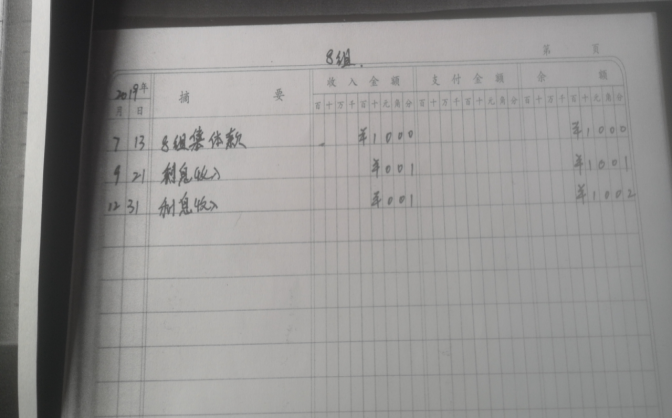 8组.
第 页
2019年 摘 要 收入金额 支付金额 余 额
月 日 百十万千百十元角分 百十万千百十元角分 百十万千百十元角分
7 13 8组集体款 ¥1000 ¥1000
9 21 利息收入 ¥001 ¥1001
12 31 利息收入 ¥001 ¥1002